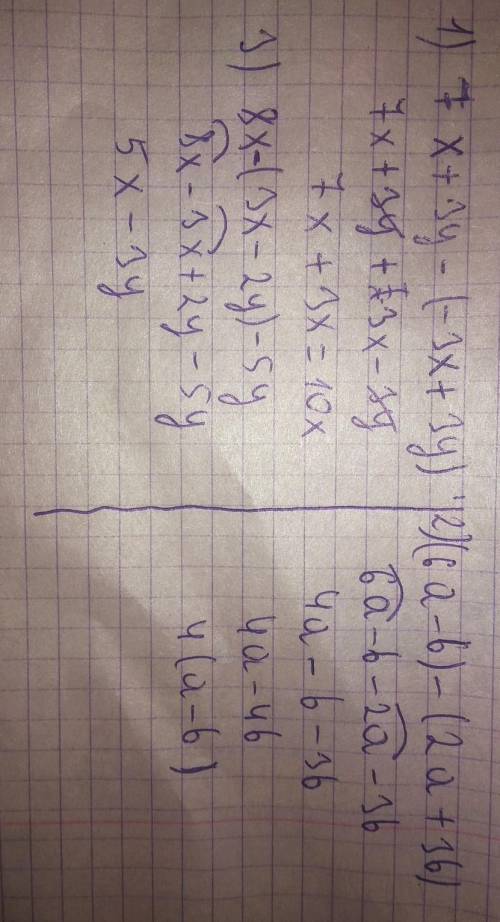 1) 7x + 3y - (-3x + 3y)
7x + 3y + 3x - 3y
7x + 3x = 10x
3) 8x - (3x - 2y) - 5y
8x - 3x + 2y - 5y
5x - 3y
2) (6a - b) - (2a + 3b)
6a - b - 2a - 3b
4a - b - 3b
4a - 4b
4(a - b)